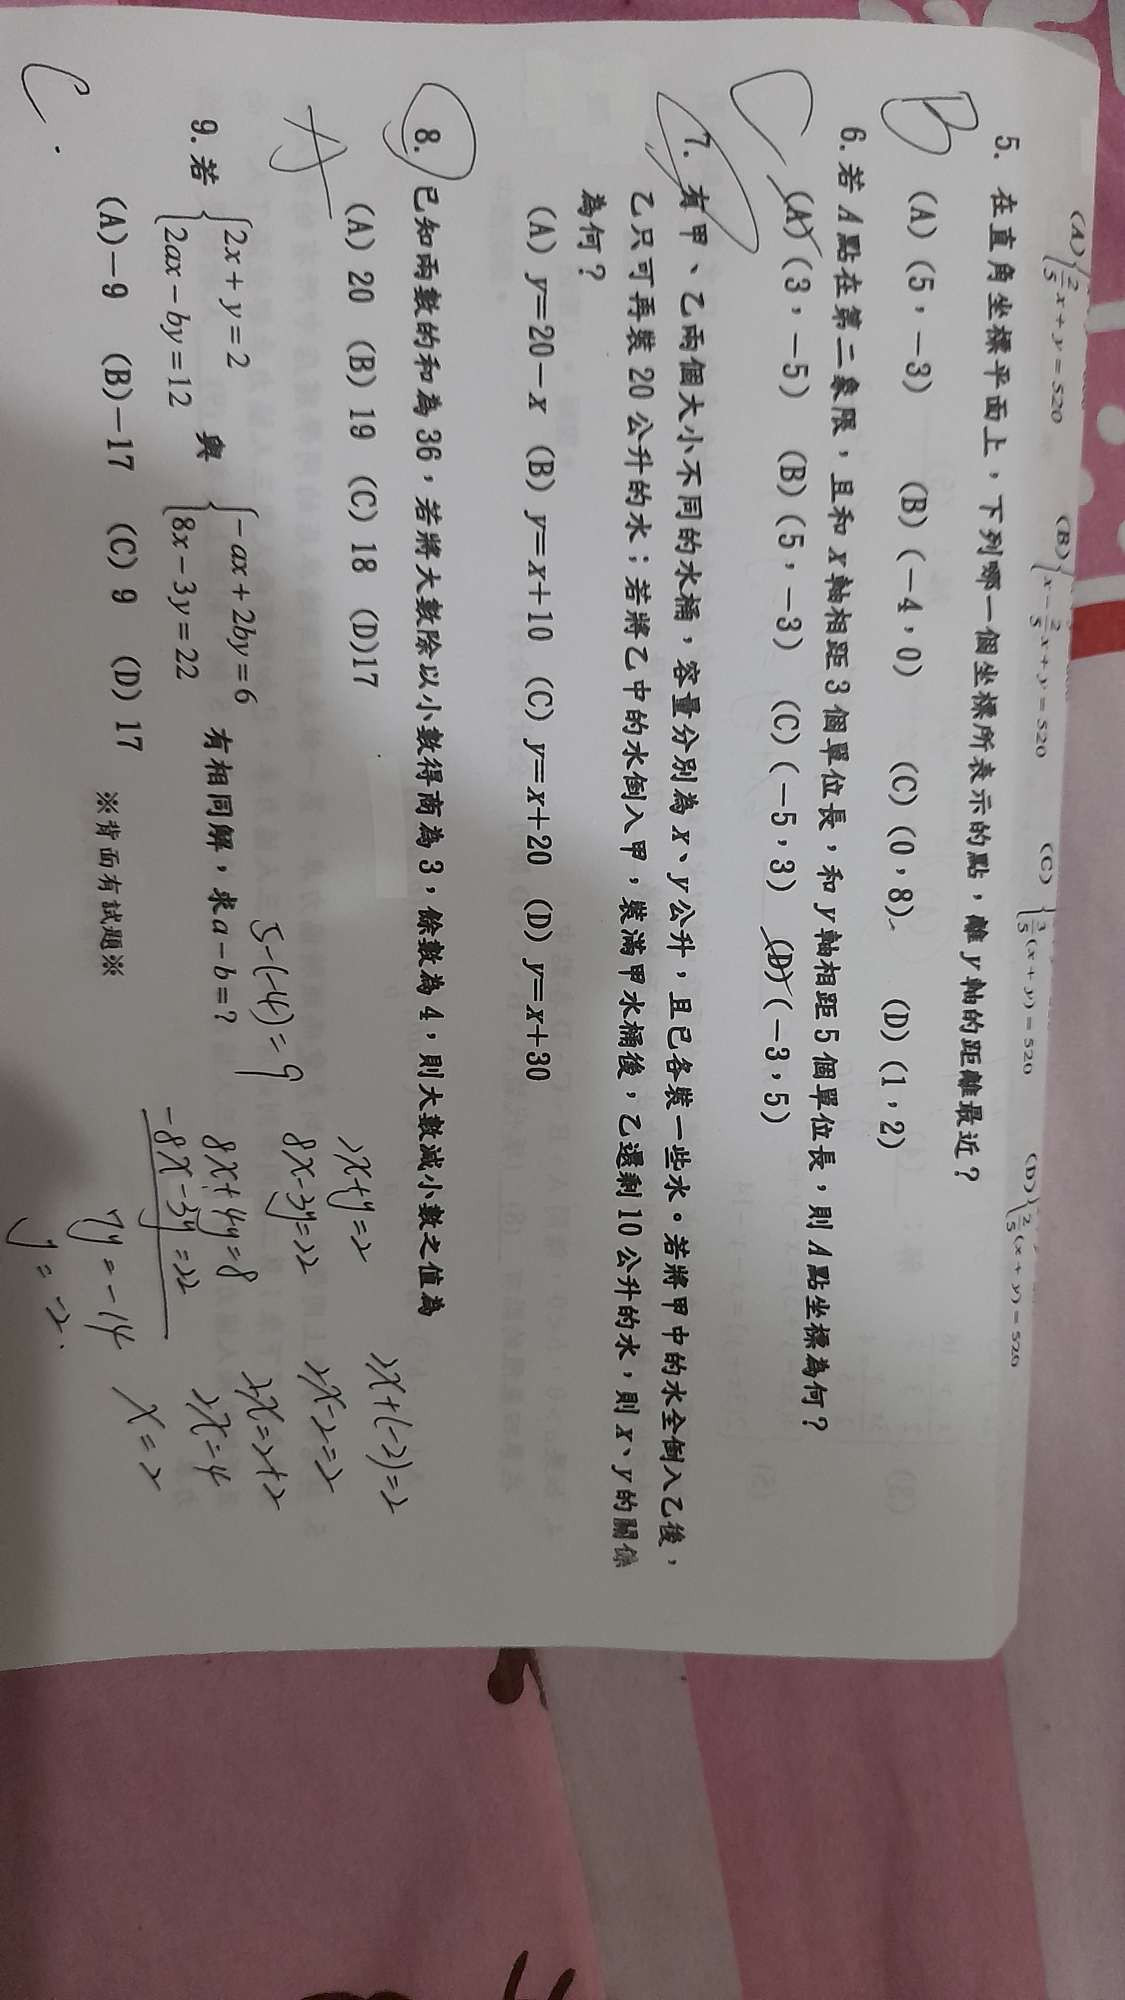 (A){ 2/5 x+y=520 (B){ x-2/5 x+y=520 (C){ 3/5 (x+y)=520 (D){ 2/5 (x+y)=520
B
5. 在直角坐標平面上，下列哪一個坐標所表示的點，離y軸的距離最近？
(A)(5，-3) (B)(-4，0) (C)(0，8) (D)(1，2)
C
6.若A點在第二象限，且和x軸相距3個單位長，和y軸相距5個單位長，則A點坐標為何？
(A)(3，-5) (B)(5，-3) (C)(-5，3) (D)(-3，5)
7.有甲、乙兩個大小不同的水桶，容量分別為x、y公升，且已各裝一些水。若將甲中的水全倒入乙後，
乙只可再裝20公升的水；若將乙中的水倒入甲，裝滿甲水桶後，乙還剩10公升的水，則x、y的關係
為何？
(A) y=20-x (B) y=x+10 (C) y=x+20 (D) y=x+30
8. 已知兩數的和為36，若將大數除以小數得商為3，餘數為4，則大數減小數之值為
A
(A) 20 (B) 19 (C) 18 (D)17
C.
9.若 {2x+y=2 2ax-by=12 與 {-ax+2by=6 8x-3y=22 有相同解，求a-b=?
(A)-9 (B)-17 (C) 9 (D) 17 ※背面有試題※
5-(-4)=9
2x+y=2
8x-3y=22
8x+4y=8
-8x-3y=22
7y=-14
y=-2.
2x+(-2)=2
2x-2=2
2x=2+2
2x=4
x=2